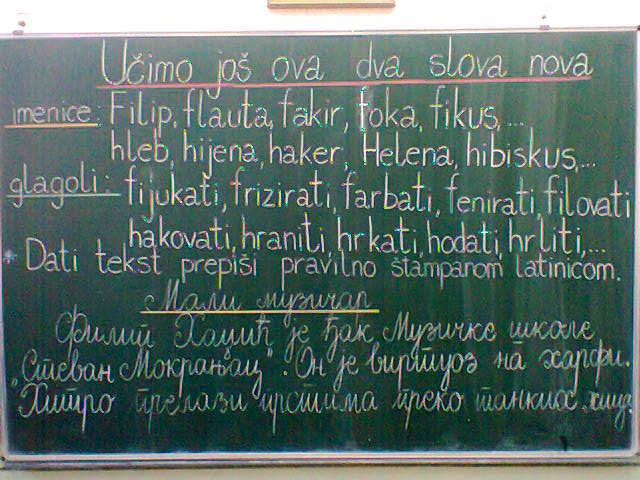 Učimo još ova dva slova nova
imenice: Filip, flauta, fakir, foka, fikus,...
hleb, hijena, haker, Helena, hibiskus,...
glagoli: fijukati, frizirati, farbati, fenirati, filovati
hakovati, hraniti, hrkati, hodati, hrliti,...
* Dati tekst prepiši pravilno štampanom latinicom.
Мали музичар
Филип Хаџић је ђак Музичке школе
„Стеван Мокрањац". Он је виртуоз на харфи.
Хитро прелази прстима преко танких